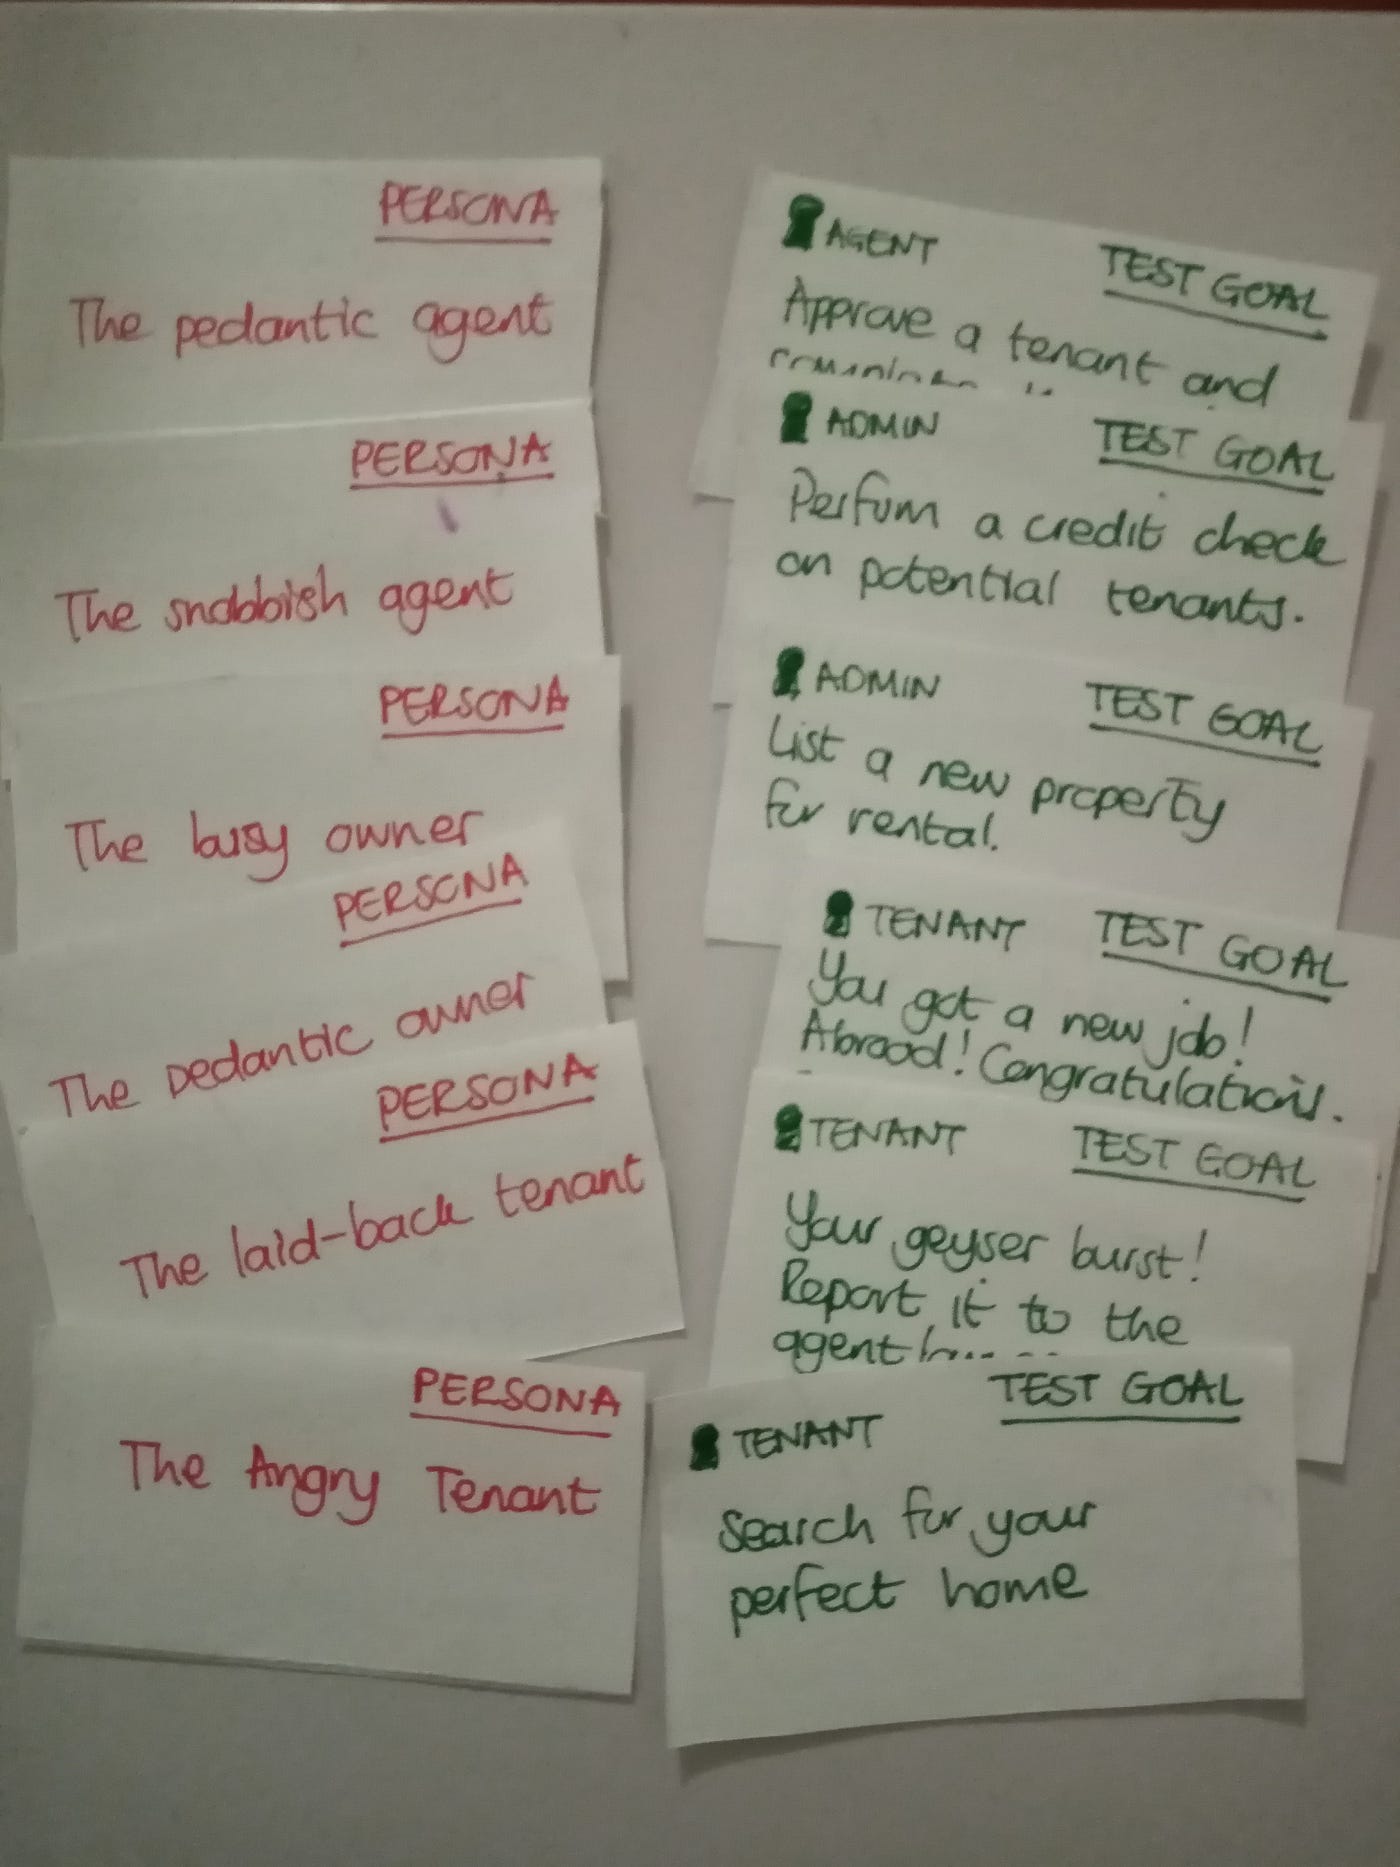 PERSONA
The pedantic agent
PERSONA
The snobbish agent
PERSONA
The busy owner
PERSONA
The pedantic owner
PERSONA
The laid-back tenant
PERSONA
The Angry Tenant
AGENT TEST GOAL
Approve a tenant and
ADMIN TEST GOAL
Perform a credit check
on potential tenants.
ADMIN TEST GOAL
List a new property
for rental.
TENANT TEST GOAL
You got a new job!
Abroad! Congratulations.
TENANT TEST GOAL
Your geyser burst!
Report it to the
agent
TENANT TEST GOAL
Search for your
perfect home